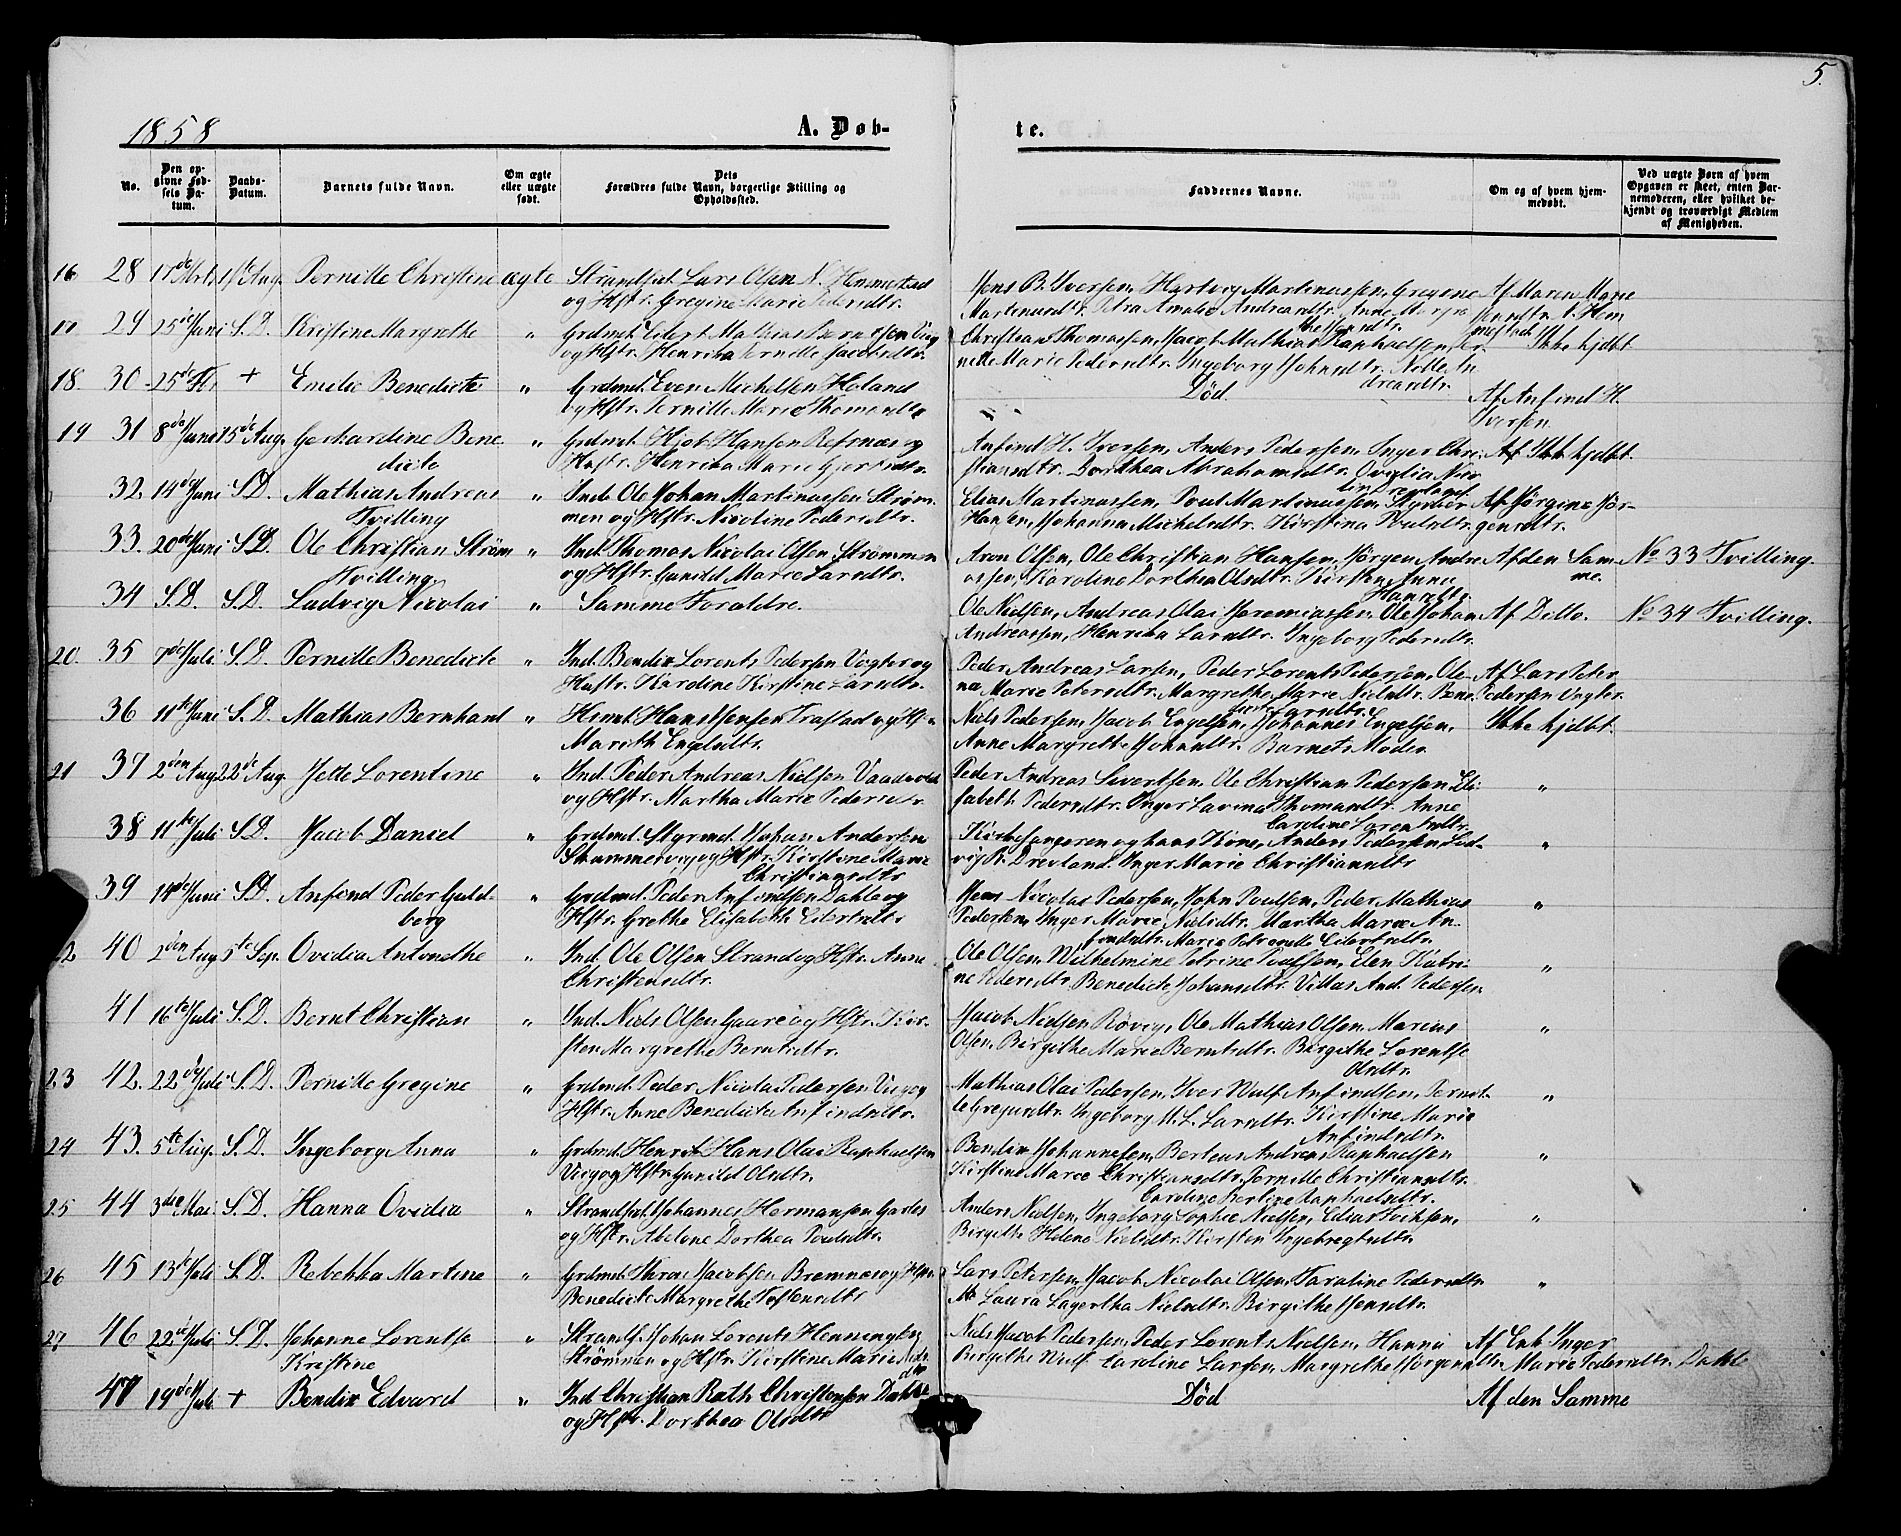 5.
1858
A. Døb-
te.
No.
Den op-
givne Fød-
sels Da-
tum.
Daabs-
Datum.
Barnets fulde Navn.
Om ægte
eller uægte
født.
Dets
Forældres fulde Navn, borgerlige Stilling og
Opholdssted.
Faddernes Navne.
Om og af hvem hjem-
medøbt.
Ved uægte Børn af hvem
Opgaven er skeet, enten Bar-
nemoderen, eller hvilket be-
kjendt og troværdigt Medlem
af Menigheden.
16 28 17de Mrts 1ste Aug. Pernille Christine ægte Strandsid. Lars Olsen N. Hemmestad
og Hstr. Gregine Marie Pedersdtr.
Jens B. Iversen, Hartvig Martinussen, Gregine
Martinusdtr. Petra Amalie Andreasdtr. Anne
Af Maren Marie
Jensdtr. Hem
mestad
17 29 25de Juni S.D. Kristine Margrethe " Grdmd. Eilert Mathias
og Hstr. Henrika Pernille Jacobsdtr.
Christian Thomassen, Jacob Mathias Raphaelsen, Per-
nille Marie Pedersdtr. Ingeborg Johnsdtr. Nille An
dreasdtr.
Ikke hjdbt.
18. 30 25de + Emilie Benedicte " Grdmd. Even Michelsen Heland
og Hstr. Pernille Marie Thomasdtr
Død.
Af Anfind H.
Iversen.
19 31 8de Juni 15de Aug. Gerhardine Bene
dicte
" Grdmd. Hjob Hansen Refsnæs og
Hustr. Henrika Marie
Anfind H. Iversen, Anders Pedersen, Inger Chri-
stiansdtr. Dorthea Abrahamsdtr. Ovidia
Ikke hjdbt.
32. 14de Juni S.D. Mathias Andreas
Tvilling
" Inds. Ole Johan Martinussen Strøm-
men og Hstr. Nicoline Pedersdtr.
Elias Martinussen, Poul Martinussen,
Hansen, Johanna Michelsdtr. Kirstina Poulsdtr.
Af Jørgine Jør-
gensdtr.
33. 20de Juni S.D. Ole Christian Strøm
Tvilling
" Ind. Thomas Nicolai Olsen Strømmen
og Hstr. Gunild Marie Larsdtr.
Aron Olsen, Ole Christian Hansen, Jørgen Andre
assen, Karoline Dorthea Olsdtr. Kirsten Anna
Hansdtr.
Af den Sam-
me.
No 33 Tvilling.
34 S.D. S.D. Ludvig Nicolai " Samme Foraldre.
Ole Nielsen, Andreas Olai Jeremiassen, Ole Johan
Andreassen, Henrika Larsdtr. Ingeborg Pedersdtr.
Af Ditto.
No 34 Tvilling.
20. 35 7de Juli S.D. Pernille Benedicte " Ind. Bendix Lorents Pedersen Vogter og
Hustr. Karoline Kirstine Larsdtr.
Peder Andreas Larsen, Peder Lorents Pedersen, Ole-
na Marie Petersdtr. Margrethe Marie Nielsdtr. Bene
dicte Larsdtr.
Af Lars Peter
Pedersen Vogter.
36 11te Juni S.D. Mathias Bernhard " Hmd. Hans Jensen Trastad og Hstr
Marith Engelsdtr.
Niels Pedersen, Jacob Engelsen, Johannes Engelsen,
Anne Margrethe Johnsdtr. Barnets Moder.
Ikke hjdbt.
21 37 2den Aug. 22de Aug. Jette Lorentine " Ind. Peder Andreas Nielsen
og Hstr. Martha Marie Pedersdtr.
Peder Andreas Sivertsen, Ole Christian Pedersen, Eli-
sabeth Pedersdtr. Inger Lavina Thomasdtr. Anne
Caroline Lorentsdtr.
"
38 11te Juli S.D. Jacob Daniel " Grdmd. Styrmd. Johan Andersen
og Hstr. Kirstine Marie
Christiansdtr
Kirkesangeren og hans Kone, Anders Pedersen, Lud-
vig R. Drevland. Inger Marie Christiansdtr
"
39 14de Juni S.D. Anfind Peder Guld-
berg
" Grdmd. Peder Anfindsen Dahle og
Hstr. Grethe Elisabeth Eilertsdtr
Jens Nicolai Pedersen, John Poulsen, Peder Mathias
Pedersen, Inger Marie Nielsdtr. Martha Marie An-
findsdtr. Marie Petronelle Eilertsdtr.
"
22. 40 2den Aug. 5te Sep. Ovidia Antonethe " Ind. Ole Olsen Strand og Hstr. Anne
Christensdtr.
Ole Olsen, Wilhelmine Petrine Poulsen, Elen Katri-
ne Pedersdtr. Benedicte Johansdtr. Villas And. Pedersen
"
41 16te Juli S.D. Bernt Christian " Ind. Niels Olsen Gaare og Hstr. Kir-
sten Margrethe Berntsdtr.
Jacob Nielsen Røvig, Ole Mathias Olsen, Marius
Olsen, Birgithe Marie Berntsdtr. Birgithe Lorentse
Olsdtr.
"
23 42. 22de Juli S.D. Pernille Gregine " Grdmd. Peder Nicolai Pedersen Vig og
Hstr. Anne Benedicte Anfindsdtr.
Mathias Olai Pedersen, Iver Wulf Anfindsen, Pernil-
le Gregersdtr. Ingeborg M. L. Larsdtr. Kirstine Marie
Anfindsdtr.
"
24 43. 5te Aug. S.D. Ingeborg Anna " Grdmd. Henrik Hans Olai Raphaelsen
Vig og Hstr. Gunild Olsdtr.
Bendix Johannesen, Berteus Andreas Raphaelsen
Kirstine Marie Christiansdtr. Pernille Christiansdtr.
Caroline Bertine Raphaelsdtr.
"
25 44 3die Mai S.D. Hanna Ovidia " Strandsid. Johannes Hermansen
og Hstr. Abelone Dorthea Poulsdtr.
Anders Nielsen, Ingeborg Sophie Nielsen,
Birgithe Helene Nielsdtr. Kirsten Ingebregtsdtr.
"
26 45 13de Juli S.D. Rebekka Martine " Grdmd. Thron Jacobsen Bremnes og Hstr.
Benedicte Margrethe Tostensdtr
Lars Petersen, Jacob Nicolai Olsen, Karoline Pedersdtr.
Laura Lagertha Nielsdtr. Birgithe Jensdtr.
"
27 46 22de Juli S.D. Johanne Lorentse
Kristine
" Strands. Johan Lorents Henningsen
Strømmen og Hstr. Kirstine Marie
Niels Jacob Pedersen, Peder Lorents Nielsen, Hanna
Birgithe Wulf. Caroline Larsen, Margrethe Jørgensdtr.
Af Enk. Inger
Marie Pedersdtr. Dahle
47 19de Juli + Bendix Edvard " Ind. Christian Rath Christensen Dahle
og Hstr. Dorthea Olsdtr
Død
Af den Samme